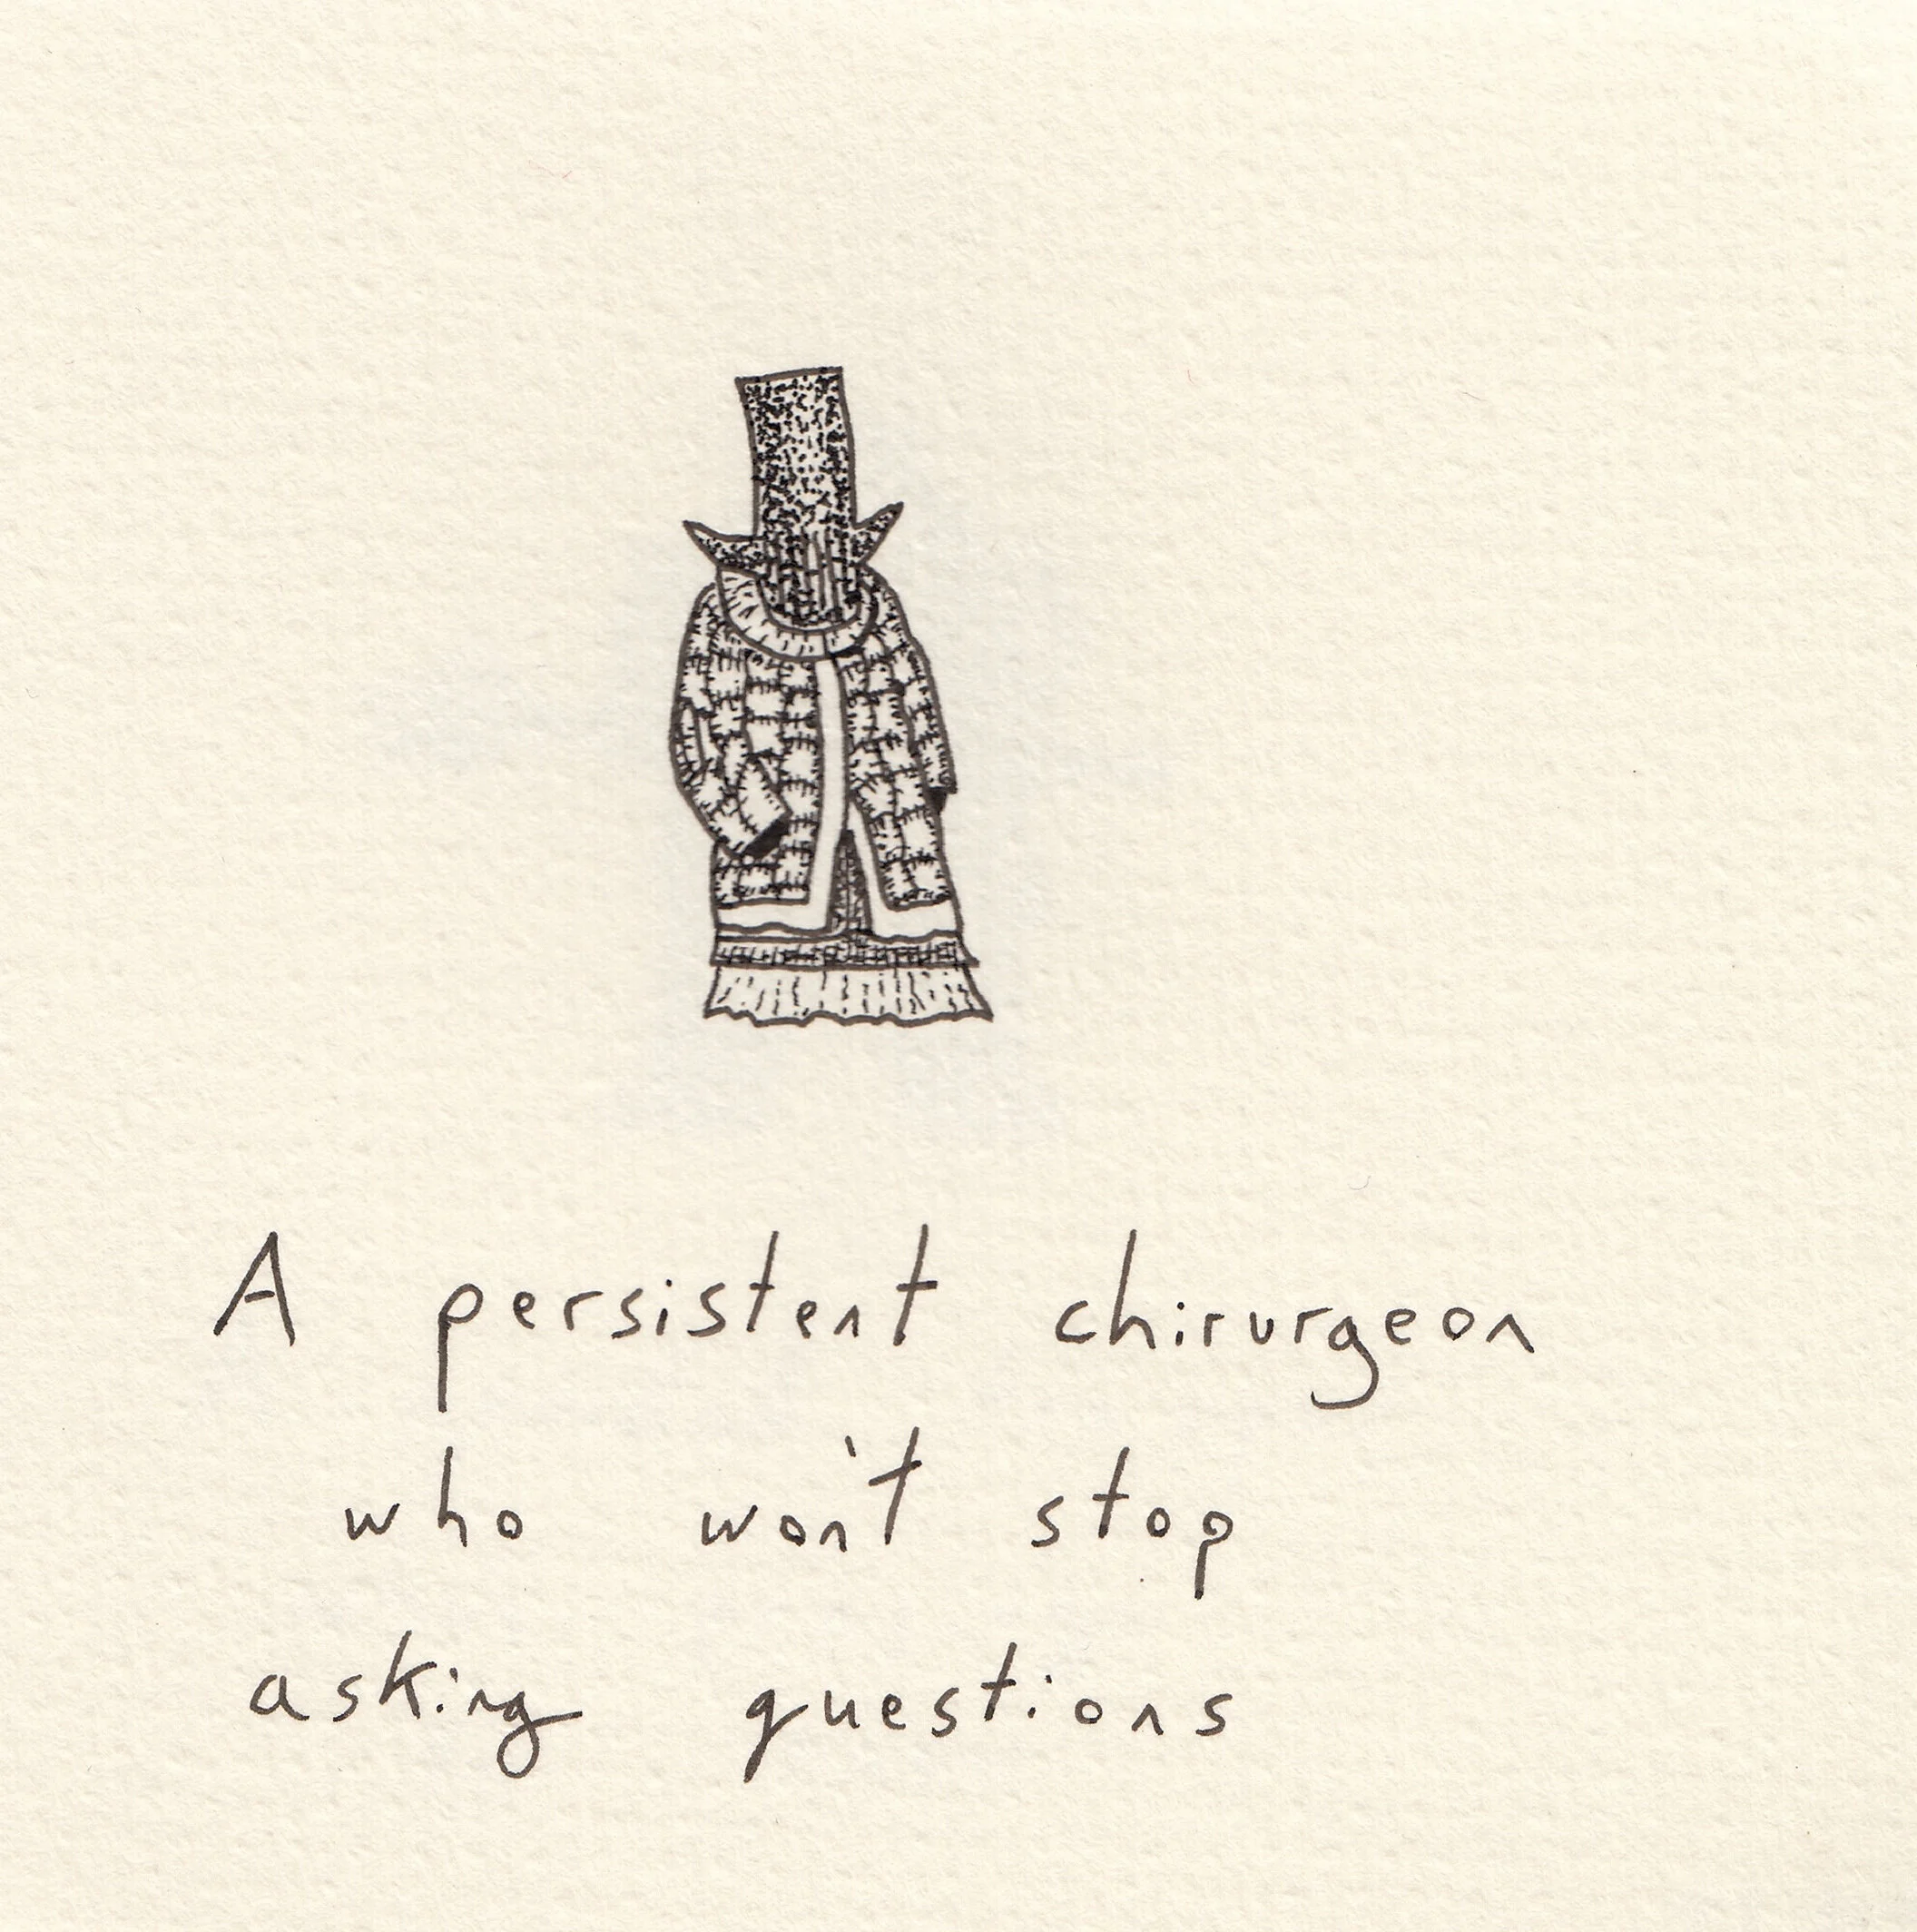 A persistent chirurgeon
who won't stop
asking questions